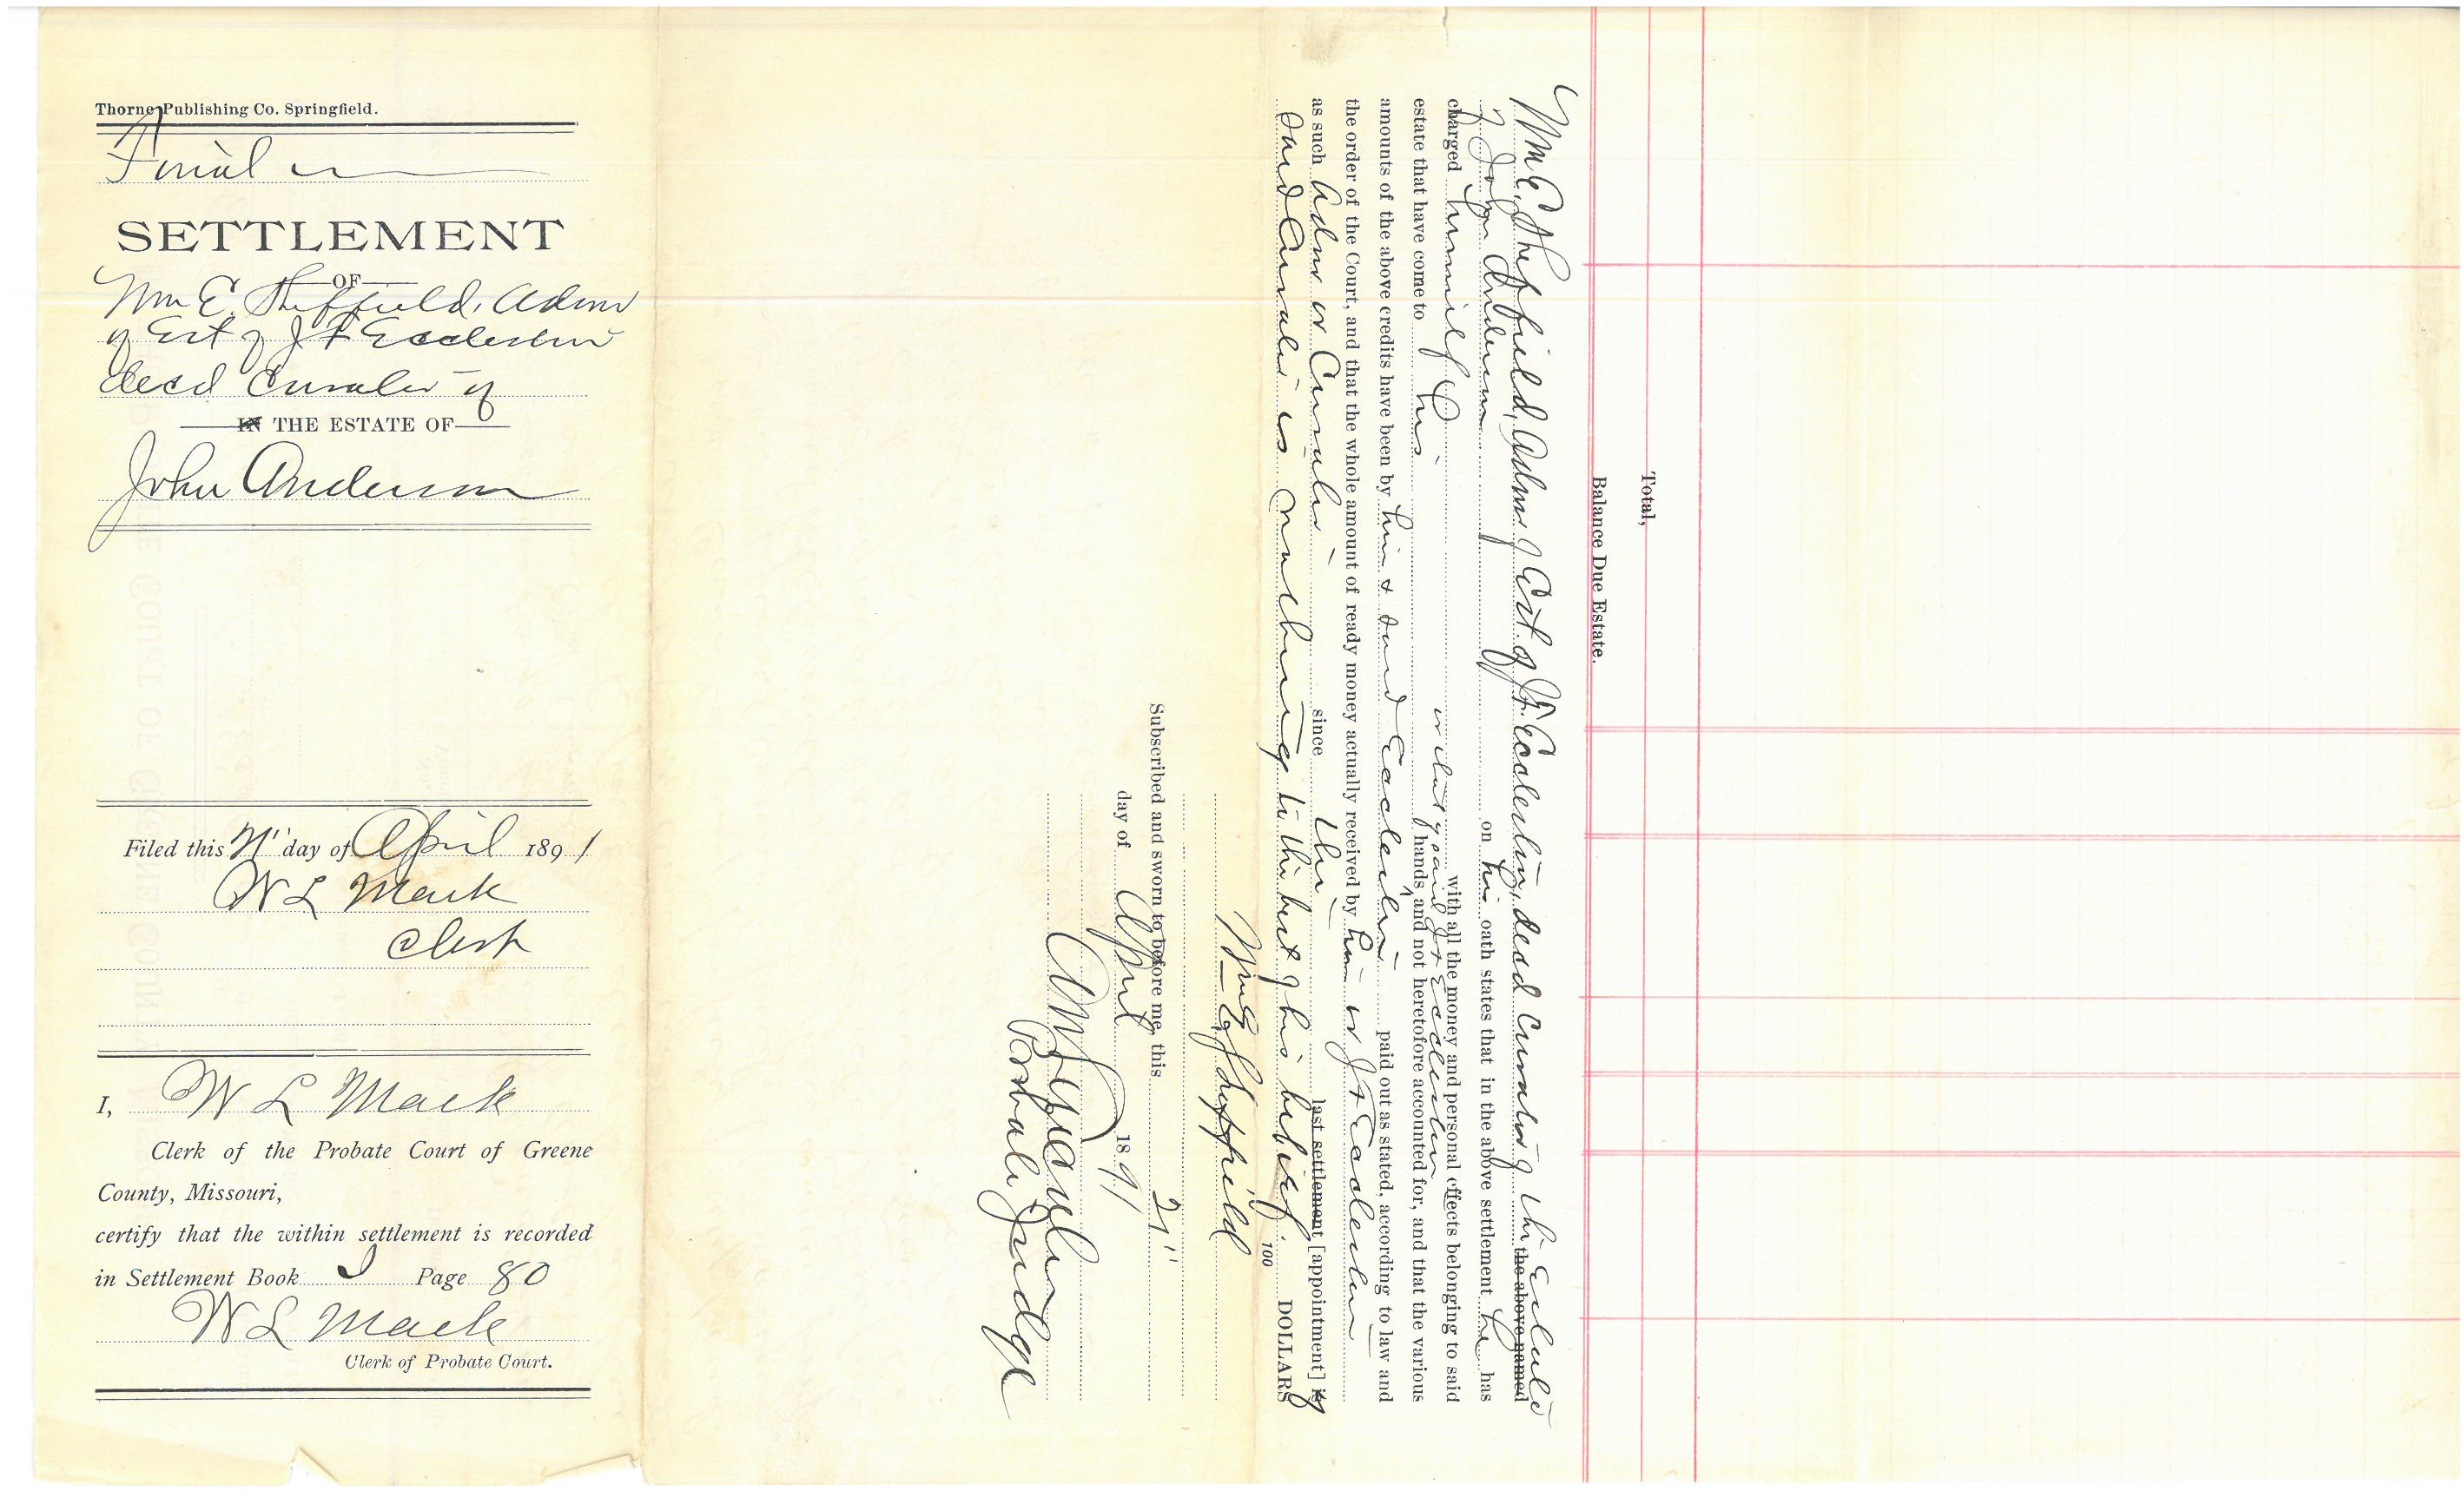 Thorne Publishing Co. Springfield.
Final
SETTLEMENT
OF
Wm E. Sheffield, Admr
of Est of J F Eccleston
decd Curator of
IN THE ESTATE OF
John Anderson
Filed this 21" day of April 1891
W L Mack
Clerk
I, W L Mack
Clerk of the Probate Court of Greene
County, Missouri,
certify that the within settlement is recorded
in Settlement Book J Page 80
W L Mack
Clerk of Probate Court.
Total,
Balance Due Estate.
Wm E. Sheffield, Admr of Est. of J F. Eccleston, decd Curator of the Estate the above named
of John Anderson on his oath states that in the above settlement he has
charged himself with all the money and personal effects belonging to said
estate that have come to his hands and not heretofore accounted for, and that the various
amounts of the above credits have been by him & said Eccleston paid out as stated, according to law and
the order of the Court, and that the whole amount of ready money actually received by him or J F Eccleston
as such Admr or Curator since the last settlement [appointment] is of
said Curator is nothing to the best of his belief. 100 DOLLARS
Wm E Sheffield
Subscribed and sworn to before me, this 21"
day of April 1891
Probate Judge